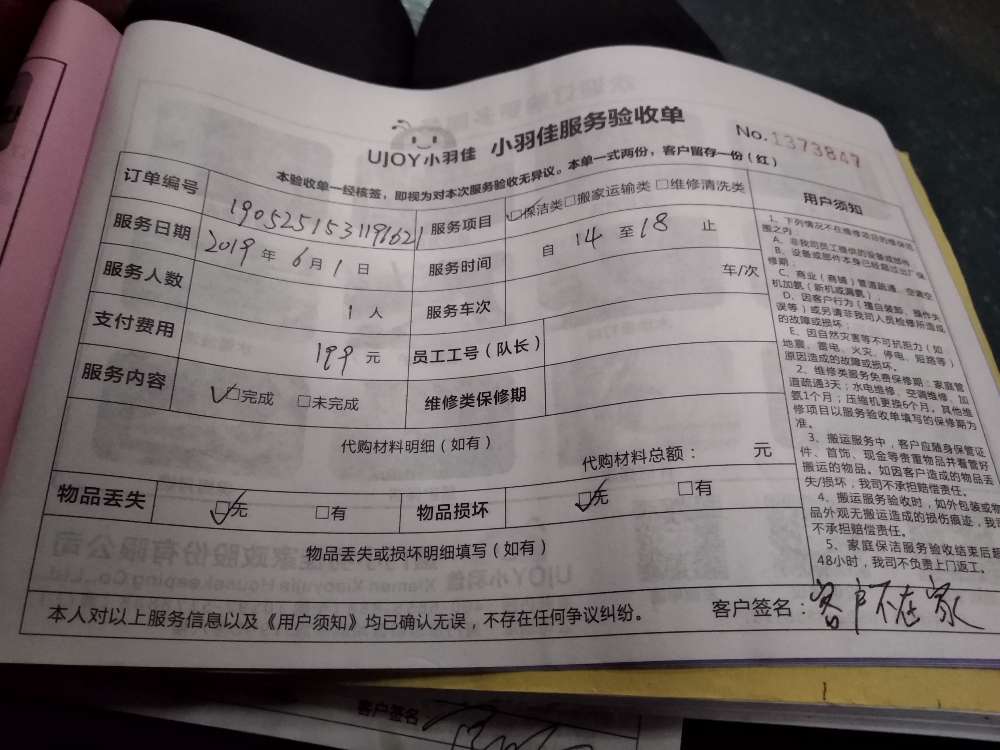 UJOY小羽佳 小羽佳服务验收单
No.1373847
本验收单一经核签，即视为对本次服务验收无异议。本单一式两份，客户留存一份（红）
订单编号 1905251531191621 服务项目 ☑保洁类□搬家运输类 □维修清洗类
服务日期 2019 年 6 月 1 日 服务时间 自 14 至 18 止
服务人数 1 人 服务车次 车/次
支付费用 199 元 员工工号（队长）
服务内容 ☑完成 □未完成 维修类保修期
代购材料明细（如有）
代购材料总额： 元
物品丢失 ☑无 □有 物品损坏 ☑无 □有
物品丢失或损坏明细填写（如有）
本人对以上服务信息以及《用户须知》均已确认无误，不存在任何争议纠纷。 客户签名：客户不在家
用户须知
1、下列情况不在维修项目的维保范
围之内
A、非我司员工提供的设备或部件
B、设备或部件本身已经超过出厂保
修期；
C、商业（商铺）管道疏通、空调空
机加氨（新机或漏氨）；
D、因客户行为（擅自装卸、操作失
误等）或另请非我司人员检修所造成
的故障或损坏；
E、因自然灾害等不可抗拒力（如
地震、雷电、火灾、停电、短路等）
原因造成的故障或损坏。
2、维修类服务免费保修期：家庭管
道疏通3天；水电维修、空调维修、加
氨1个月；压缩机更换6个月。其他维
修项目以服务验收单填写的保修期为
准。
3、搬运服务中，客户应随身保管证
件、首饰、现金等贵重物品并看管好
搬运的物品。如因客户造成的物品丢
失/损坏，我司不承担赔偿责任。
4、搬运服务验收时，如外包装或物
品外观无搬运造成的损伤痕迹，我司
不承担赔偿责任。
5、家庭保洁服务验收结束后超
48小时，我司不负责上门返工。
客户签名：